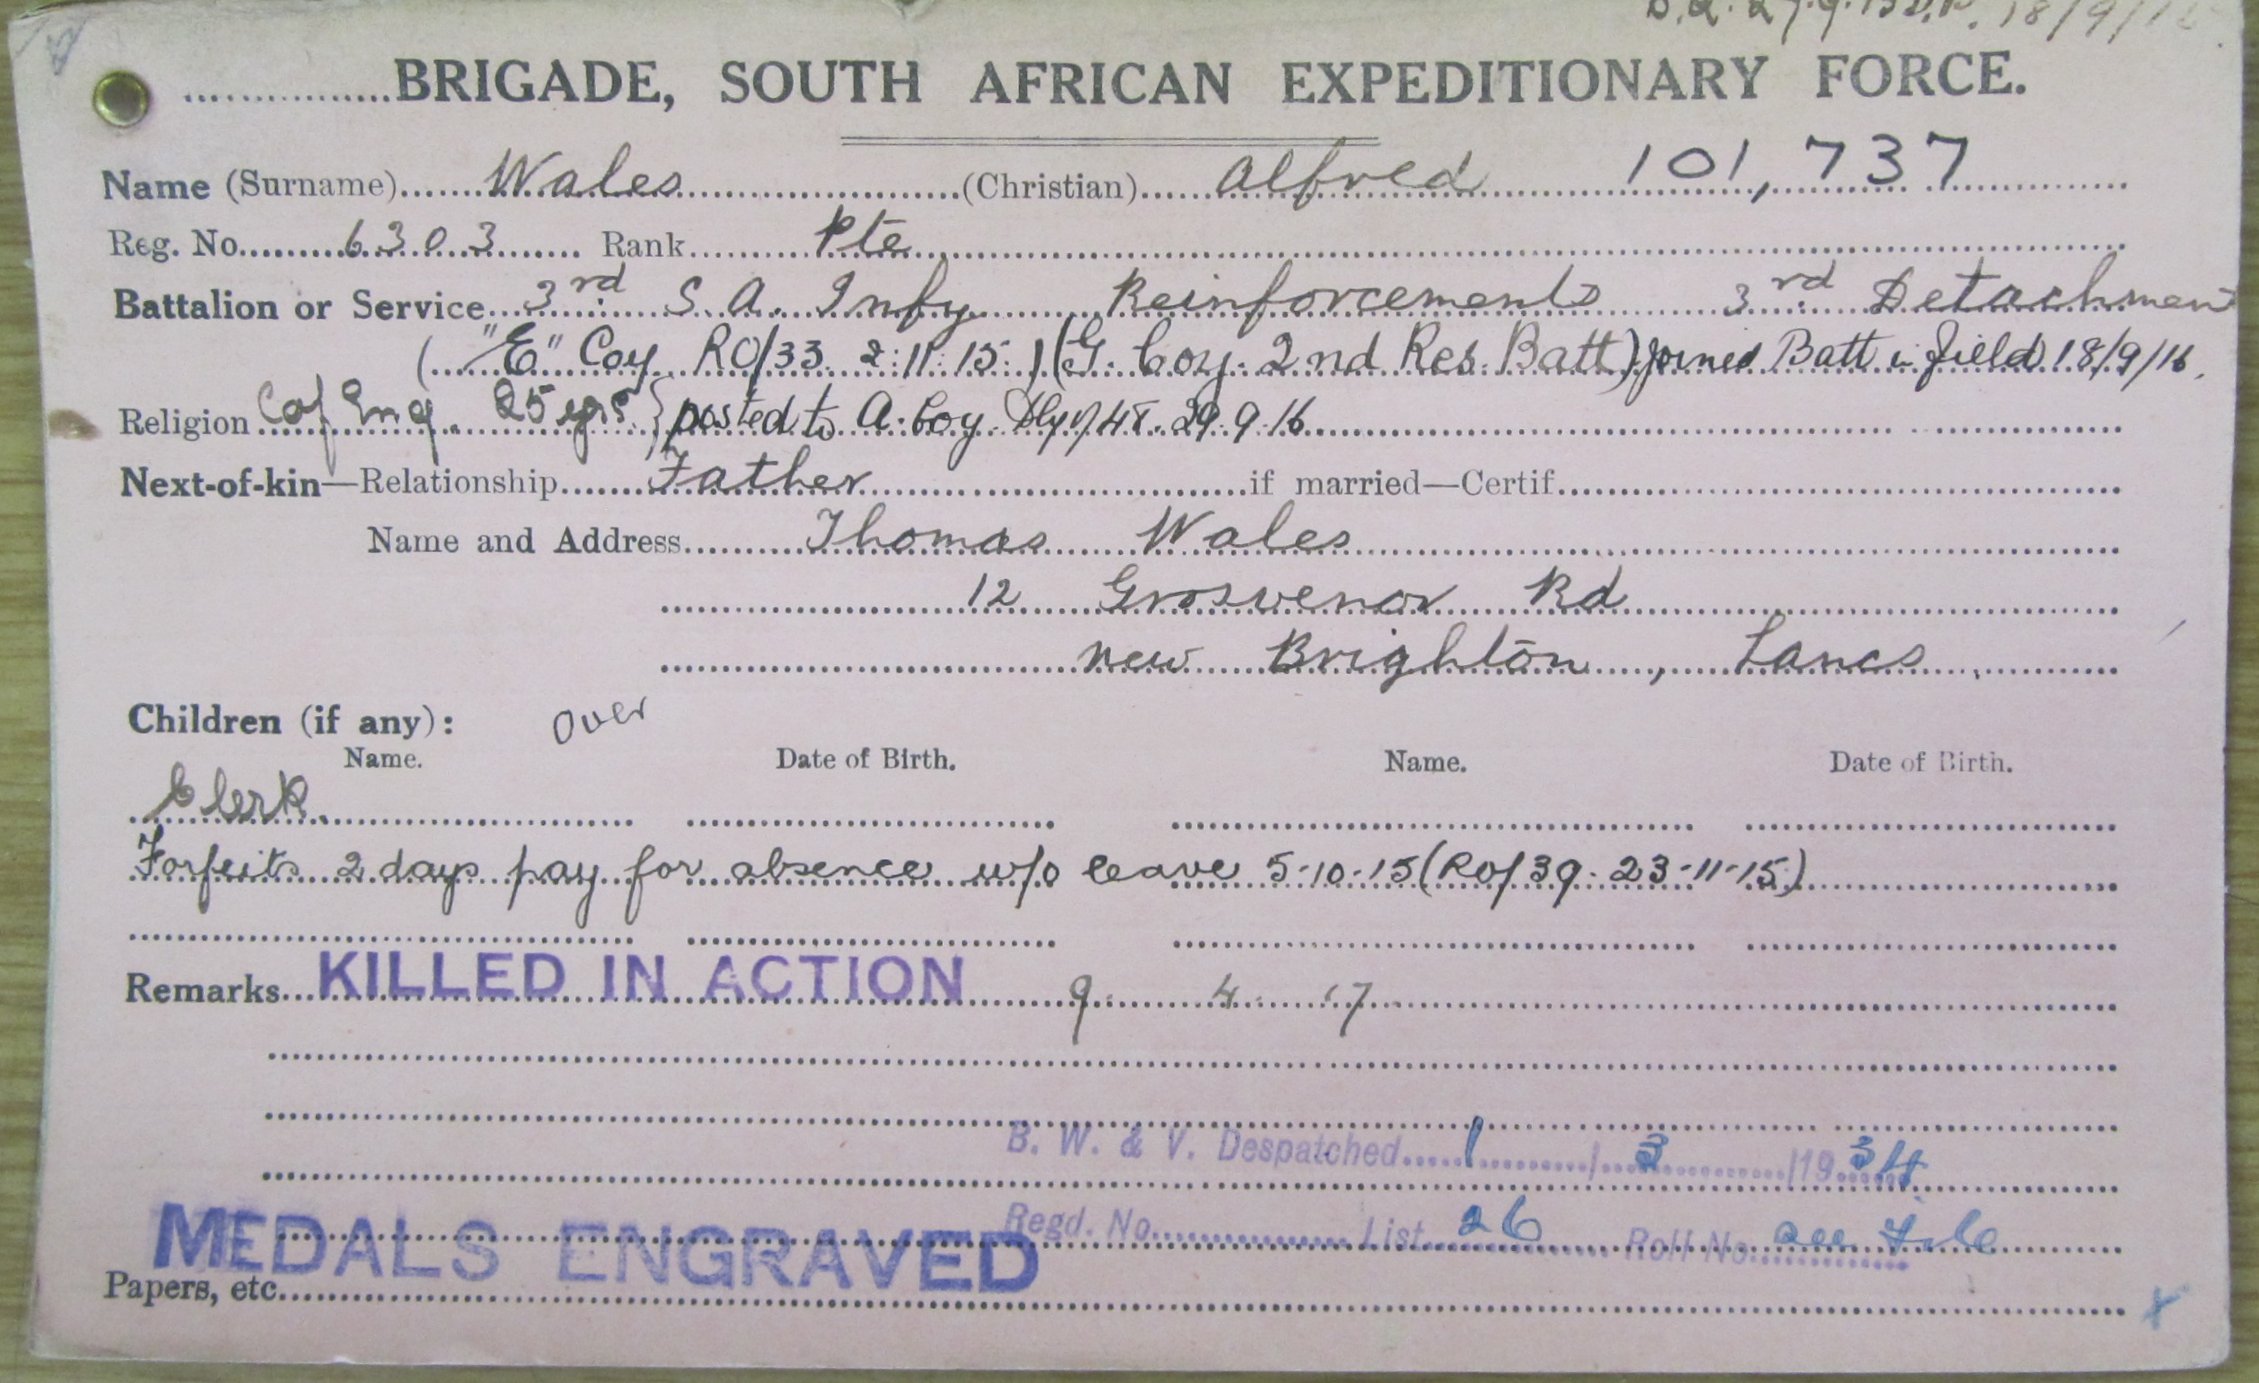 18/9/16
BRIGADE, SOUTH AFRICAN EXPEDITIONARY FORCE.
Name (Surname) Wales (Christian) Alfred 101,737
Reg. No. 6303 Rank Pte
Battalion or Service 3rd S. A. Infy Reinforcements 3rd Detachment
("E" Coy RO/33 2:11:15.) (G. Coy. 2nd Res. Batt) joined Batt in field 18/9/16.
Religion C of Eng. 25 yrs. } posted to A. Coy. 29.9.16
Next-of-kin—Relationship Father if married—Certif.
Name and Address Thomas Wales
12 Grosvenor Rd
New Brighton, Lancs.
Children (if any): Over
Name. Date of Birth. Name. Date of Birth.
Clerk.
Forfeits 2 days pay for absence w/o leave 5-10-15 (RO/39. 23-11-15)
Remarks KILLED IN ACTION 9. 4. 17
B. W. & V. Despatched 1 / 3 /1934
Regd. No. List 26 Roll No. see file
MEDALS ENGRAVED
Papers, etc.